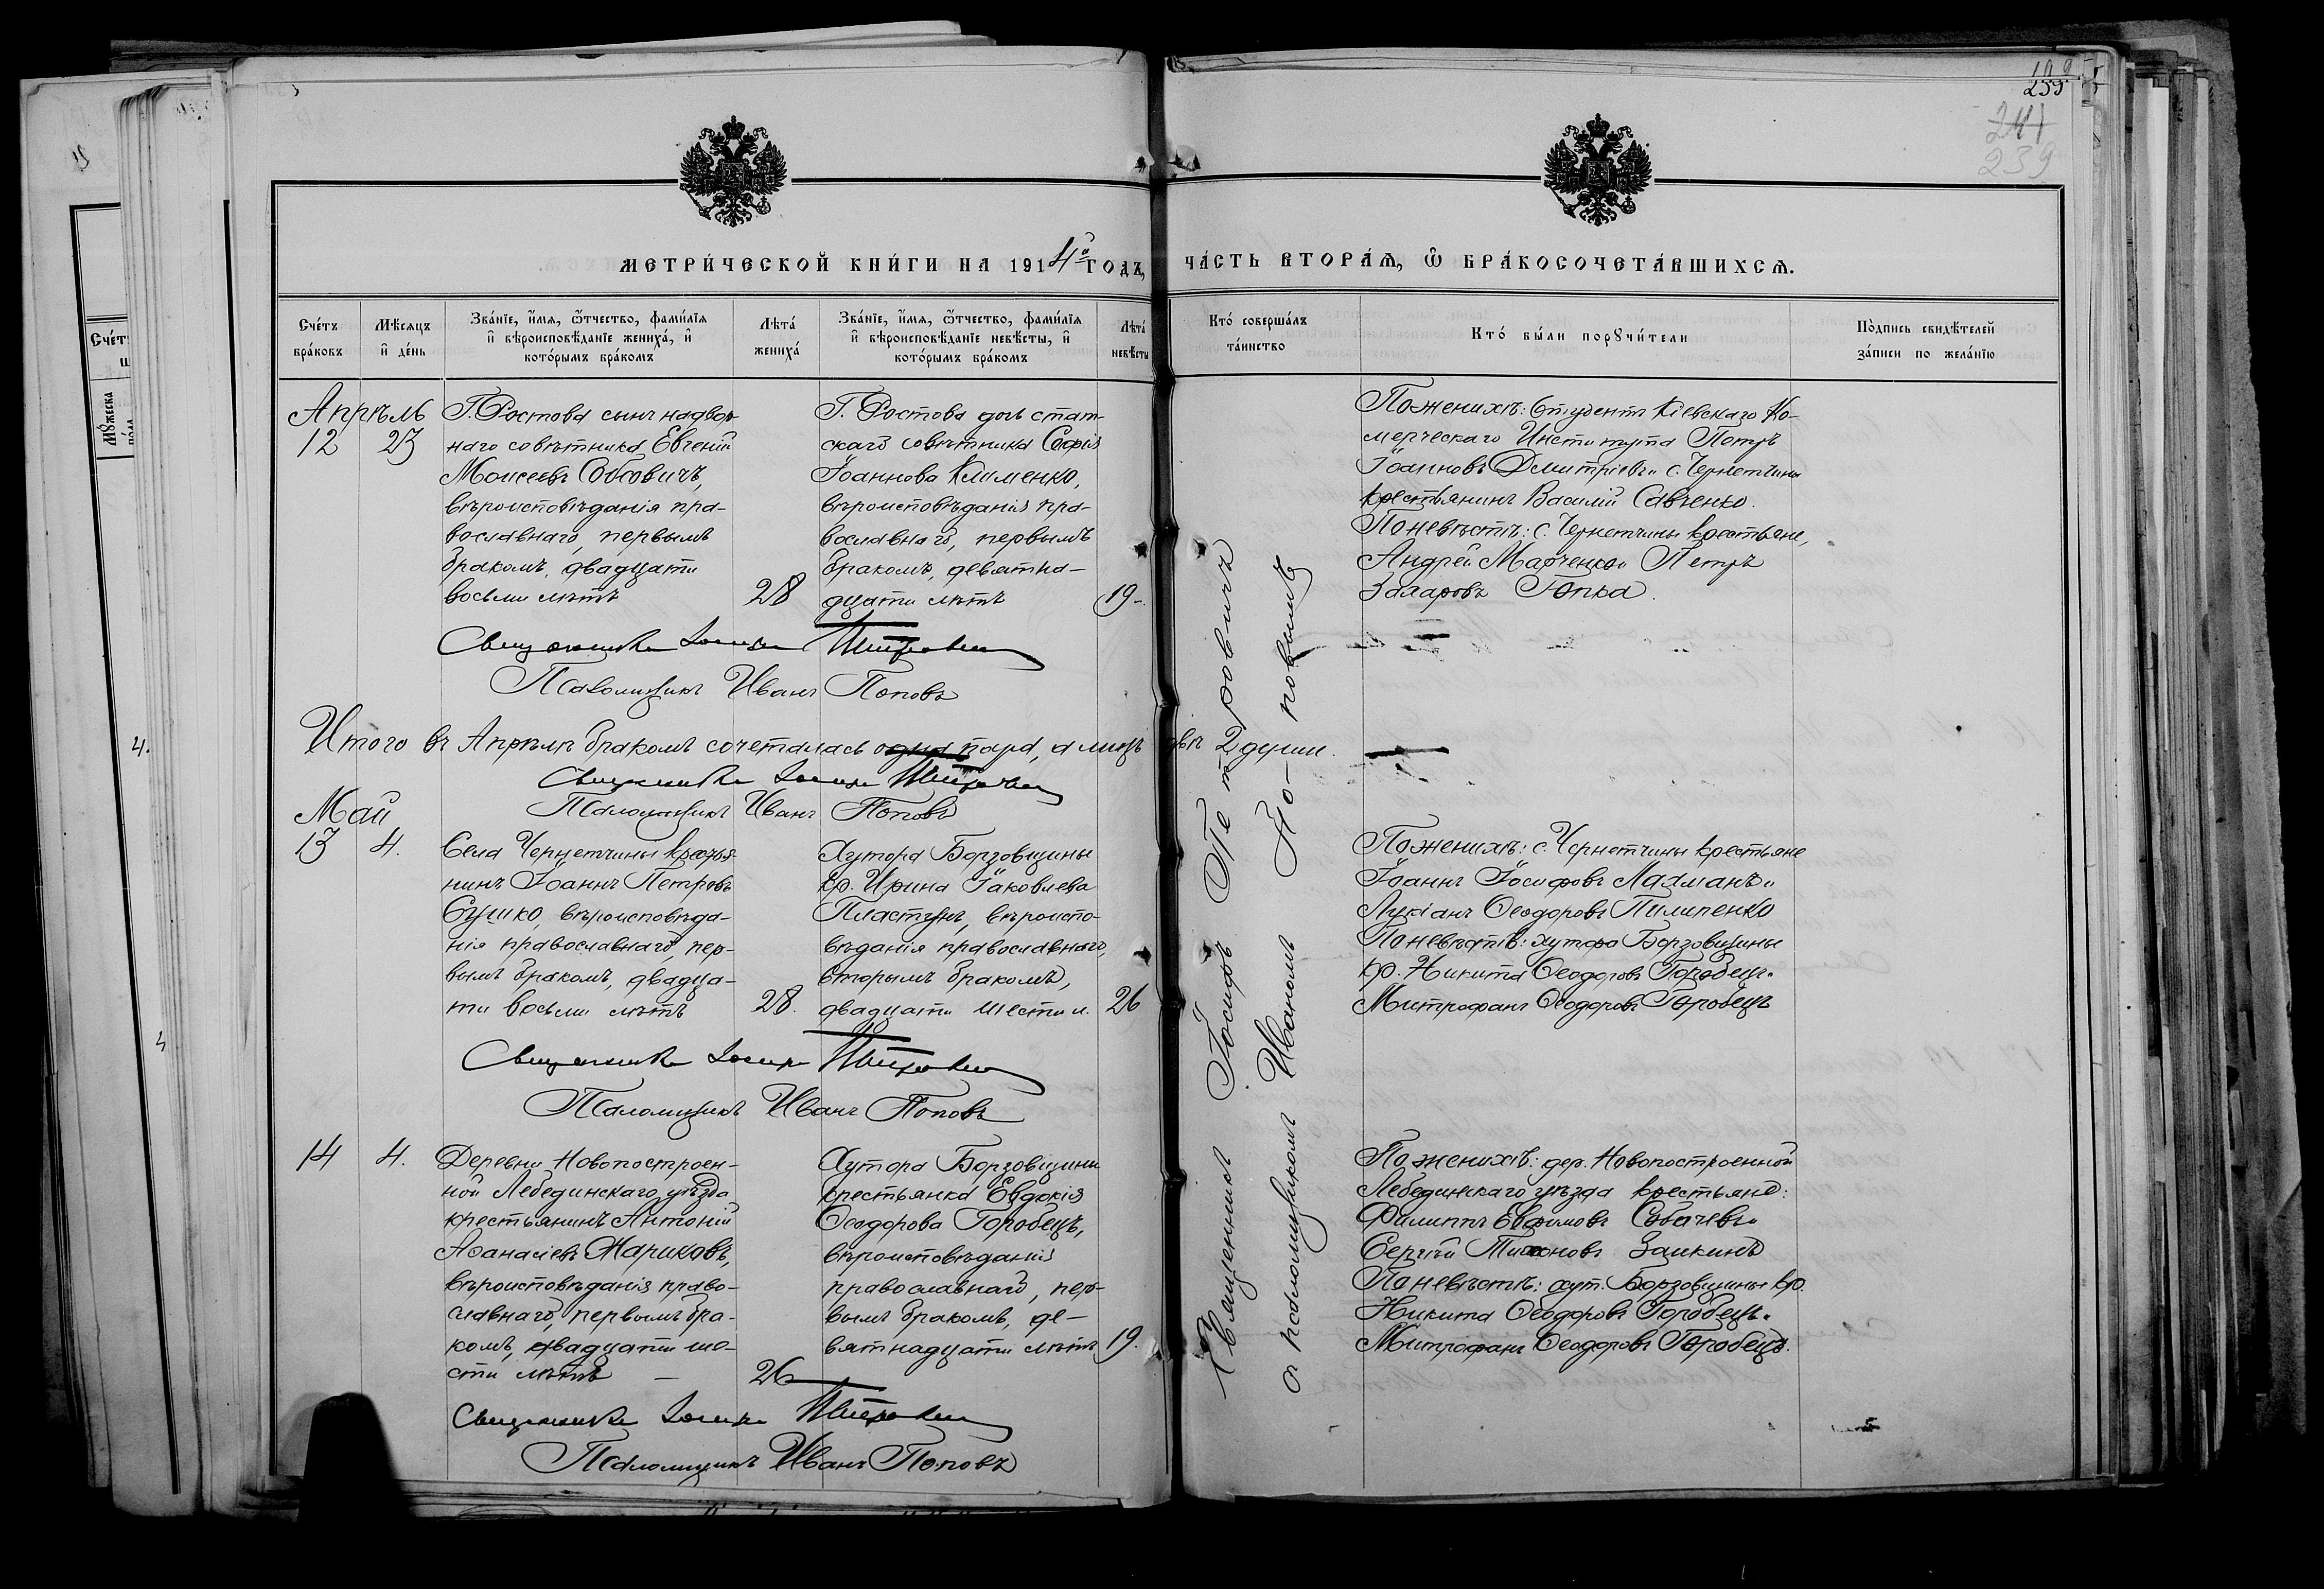 199
235
241
239
МЕТРИ́ЧЕСКОЙ КНИ́ГИ НА 1914й ГОДЪ,
ЧА́СТЬ ВТОРА́Ѧ, Ѽ БРА́КОСОЧЕТА́ВШИХСѦ.
Сче́тъ бра́ковъ
Мѣ́сяцъ и҆ де́нь
Зва́нїе, и҆́мѧ, ѻ҆́тчество, фами́лїѧ
и҆ вѣроисповѣ́данїе жениха́, и҆
кото́рымъ бра́комъ
Лѣта́ жениха́
Зва́нїе, и҆́мѧ, ѻ҆́тчество, фами́лїѧ
и҆ вѣроисповѣ́данїе невѣ́сты, и҆
кото́рымъ бра́комъ
Лѣта́ невѣ́сты
Кто́ соверша́лъ та́инство
Кто́ бы́ли порꙋчи́тели
По́дпись свидѣ́телей за́писи по жела́нїю
Апрѣль
12 23
Г. Ростова сынъ надвор-
наго совѣтника Евгеній
Моисеевъ Собовичъ,
вѣроисповѣданія пра-
вославнаго, первымъ
бракомъ, двадцати
восьми лѣтъ 28
Г. Ростова дочь стат-
скаго совѣтника Софія
Іоаннова Клименко,
вѣроисповѣданія пра-
вославнаго, первымъ
бракомъ, девятна-
дцати лѣтъ 19
По женихѣ: Студентъ Кіевскаго Ко-
мерческаго Института Петръ
Іоанновъ Дмитріевъ и с. Чернетчины
крестьянинъ Василій Савченко.
По невѣстѣ: с. Чернетчины крестьяне,
Андрей Марченко и Петръ
Захаровъ Гопка.
Священникъ Іосифъ Петровичъ
Псаломщикъ Иванъ Поповъ
Итого въ Апрѣлѣ бракомъ сочеталась одна пара, а лицъ двѣ 2 души.
Священникъ Іосифъ Петровичъ
Псаломщикъ Иванъ Поповъ
Май
13 4.
Села Чернетчины крестья-
нинъ Іоаннъ Петровъ
Сушко, вѣроисповѣда-
нія православнаго, пер-
вымъ бракомъ, двадца-
ти восьми лѣтъ 28.
Хутора Борзовщины
кр. Ирина Іаковлева
Пластунъ, вѣроиспо-
вѣданія православнаго,
вторымъ бракомъ,
двадцати шести л. 26
По женихѣ: с. Чернетчины крестьяне
Іоаннъ Іосифовъ Лахманъ и
Лукіанъ Ѳеодоровъ Пилипенко
По невѣстѣ: хутора Борзовщины
кр. Никита Ѳеодоровъ Горобецъ и
Митрофанъ Ѳеодоровъ Горобецъ
Священникъ Іосифъ Петровичъ
Псаломщикъ Иванъ Поповъ
14 4.
Деревни Новопостроен-
ной Лебединскаго уѣзда
крестьянинъ Антоній
Аѳанасіевъ Жариковъ,
вѣроисповѣданія право-
славнаго, первымъ бра-
комъ, двадцати ше-
сти лѣтъ — 26
Хутора Борзовщины
крестьянка Евдокія
Ѳеодорова Горобецъ,
вѣроисповѣданія
православнаго, пер-
вымъ бракомъ, де-
вятнадцати лѣтъ 19.
По женихѣ: дер. Новопостроенной
Лебединскаго уѣзда крестьяне:
Филиппъ Евфимовъ Собачевъ и
Сергій Тихоновъ Заикинъ
По невѣстѣ: хут. Борзовщины кр.
Никита Ѳеодоровъ Горобецъ и
Митрофанъ Ѳеодоровъ Горобецъ.
Священникъ Іосифъ Петровичъ
Псаломщикъ Иванъ Поповъ
Священникъ Іосифъ Петровичъ
съ псаломщикомъ Иваномъ По-повымъ